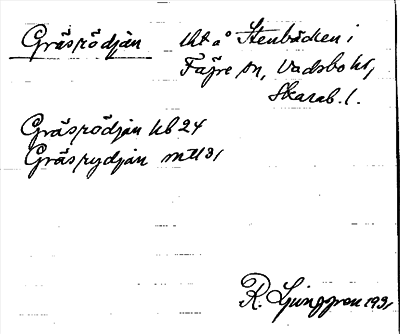 Gräsrödjan lht å Stenbäcken i
Fägre sn, Vadsbo hd,
Skarab. l.
Gräsrödjan kb 24
Gräsrydjan mtl 31
R. Ljunggren 1931